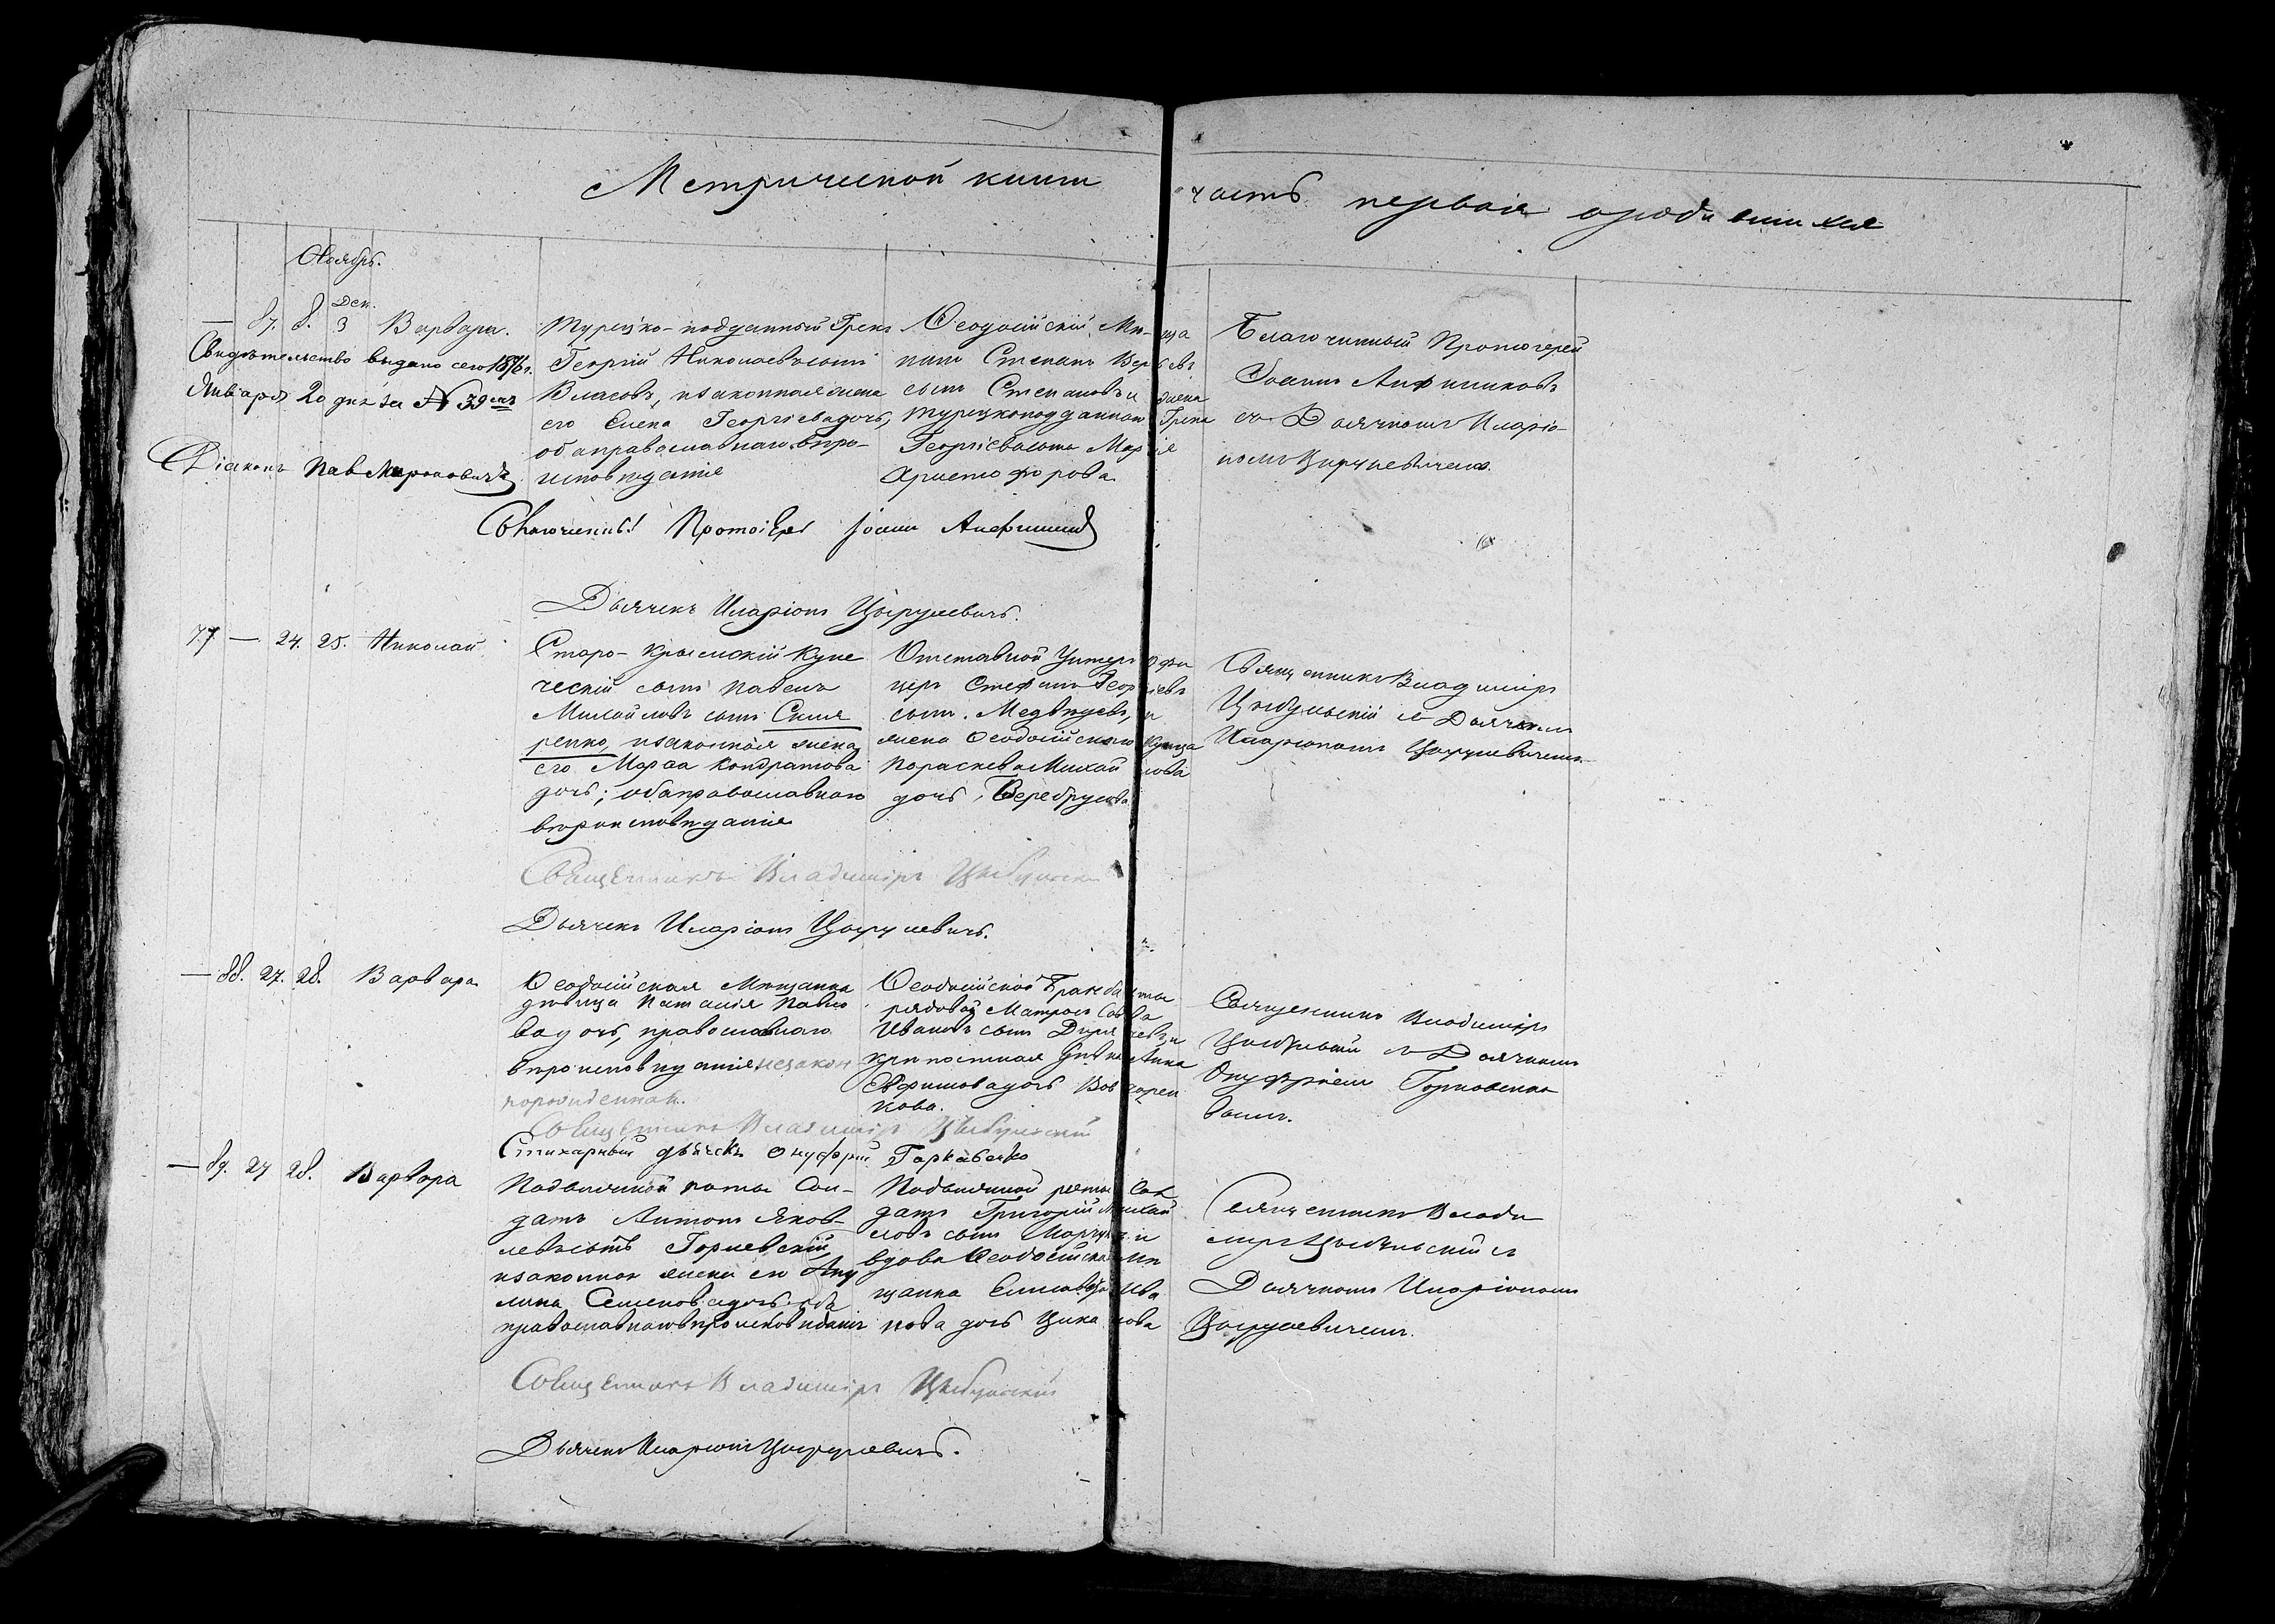 Метрической книги часть первая о родившихся
Ноябрь.
— 87. 8. Дек. 3 Варвара.
Свидѣтельство выдано сего 1876 г.
Января 20 дня за № 39
Діаконъ Пав Мироновичъ
Турецко-подданный Грекъ
Георгій Николаевъ сынъ
Власовъ, и законная жена
его Елена Георгіева дочь,
оба православнаго вѣро-
исповѣданія
Ѳеодосійскій Мѣ-
Степанъ
сынъ Степановъ и жена
Турецкоподданнаго Грека
Георгіева Марія
Христофорова
Благочинный Протоіерей
Іоаннъ
съ Дьячкомъ Иларіо-
номъ Цыруневичемъ.
Протоіерей Іоаннъ
Дьячекъ Иларіонъ Цыруневичъ.
77 — 24. 25. Николай
Старо-Крымскій Купе
ческій сынъ Павелъ
Михайловъ сынъ Скля
ренко, и законная жена
его Марѳа Кондратова
дочь; оба православнаго
вѣроисповѣданія
Отставной Унтеръ Офи
церъ Стефанъ Георгіевъ
сынъ Медвѣдевъ, и
жена Ѳеодосійскаго Купца
Параскева Михайлова
дочь, Веребрусова
Священникъ Владиміръ
Цыбульскій съ Дьячкомъ
Иларіономъ Цыруневичемъ
Священникъ Владиміръ Цыбульскій
Дьячекъ Иларіонъ Цыруневичъ.
— 88. 27. 28. Варвара
Ѳеодосійская Мѣщанка
дѣвица Наталія Павло
ва дочь, православнаго
вѣроисповѣданія незакон
норожденная.
Ѳеодосійской
рядовой Матросъ Савва
Ивановъ сынъ
крѣпостная дѣвка Анна
Евфимова дочь
кова.
Священникъ Владиміръ
Цыбульскій съ Дьячкомъ
Онуфріемъ Горковенко
вымъ.
Священникъ Владиміръ Цыбульскій
Стихарный дьячекъ Онуфрій Горковенко
— 89. 27 28. Варвара
Подвижной роты Сол-
датъ Антонъ Яков-
левъ сынъ Горлевскій
и законная жена его Аку
лина Семенова дочь оба
православнаго вѣроисповѣданія
Подвижной роты Сол
датъ Григорій Михай
ловъ сынъ и
вдова Ѳеодосійская Мѣ
щанка Елисавета Ива
нова дочь
Священникъ Влади
міръ Цыбульскій съ
Дьячкомъ Иларіономъ
Цыруневичемъ.
Священникъ Владиміръ Цыбульскій
Дьячекъ Иларіонъ Цыруневичъ.